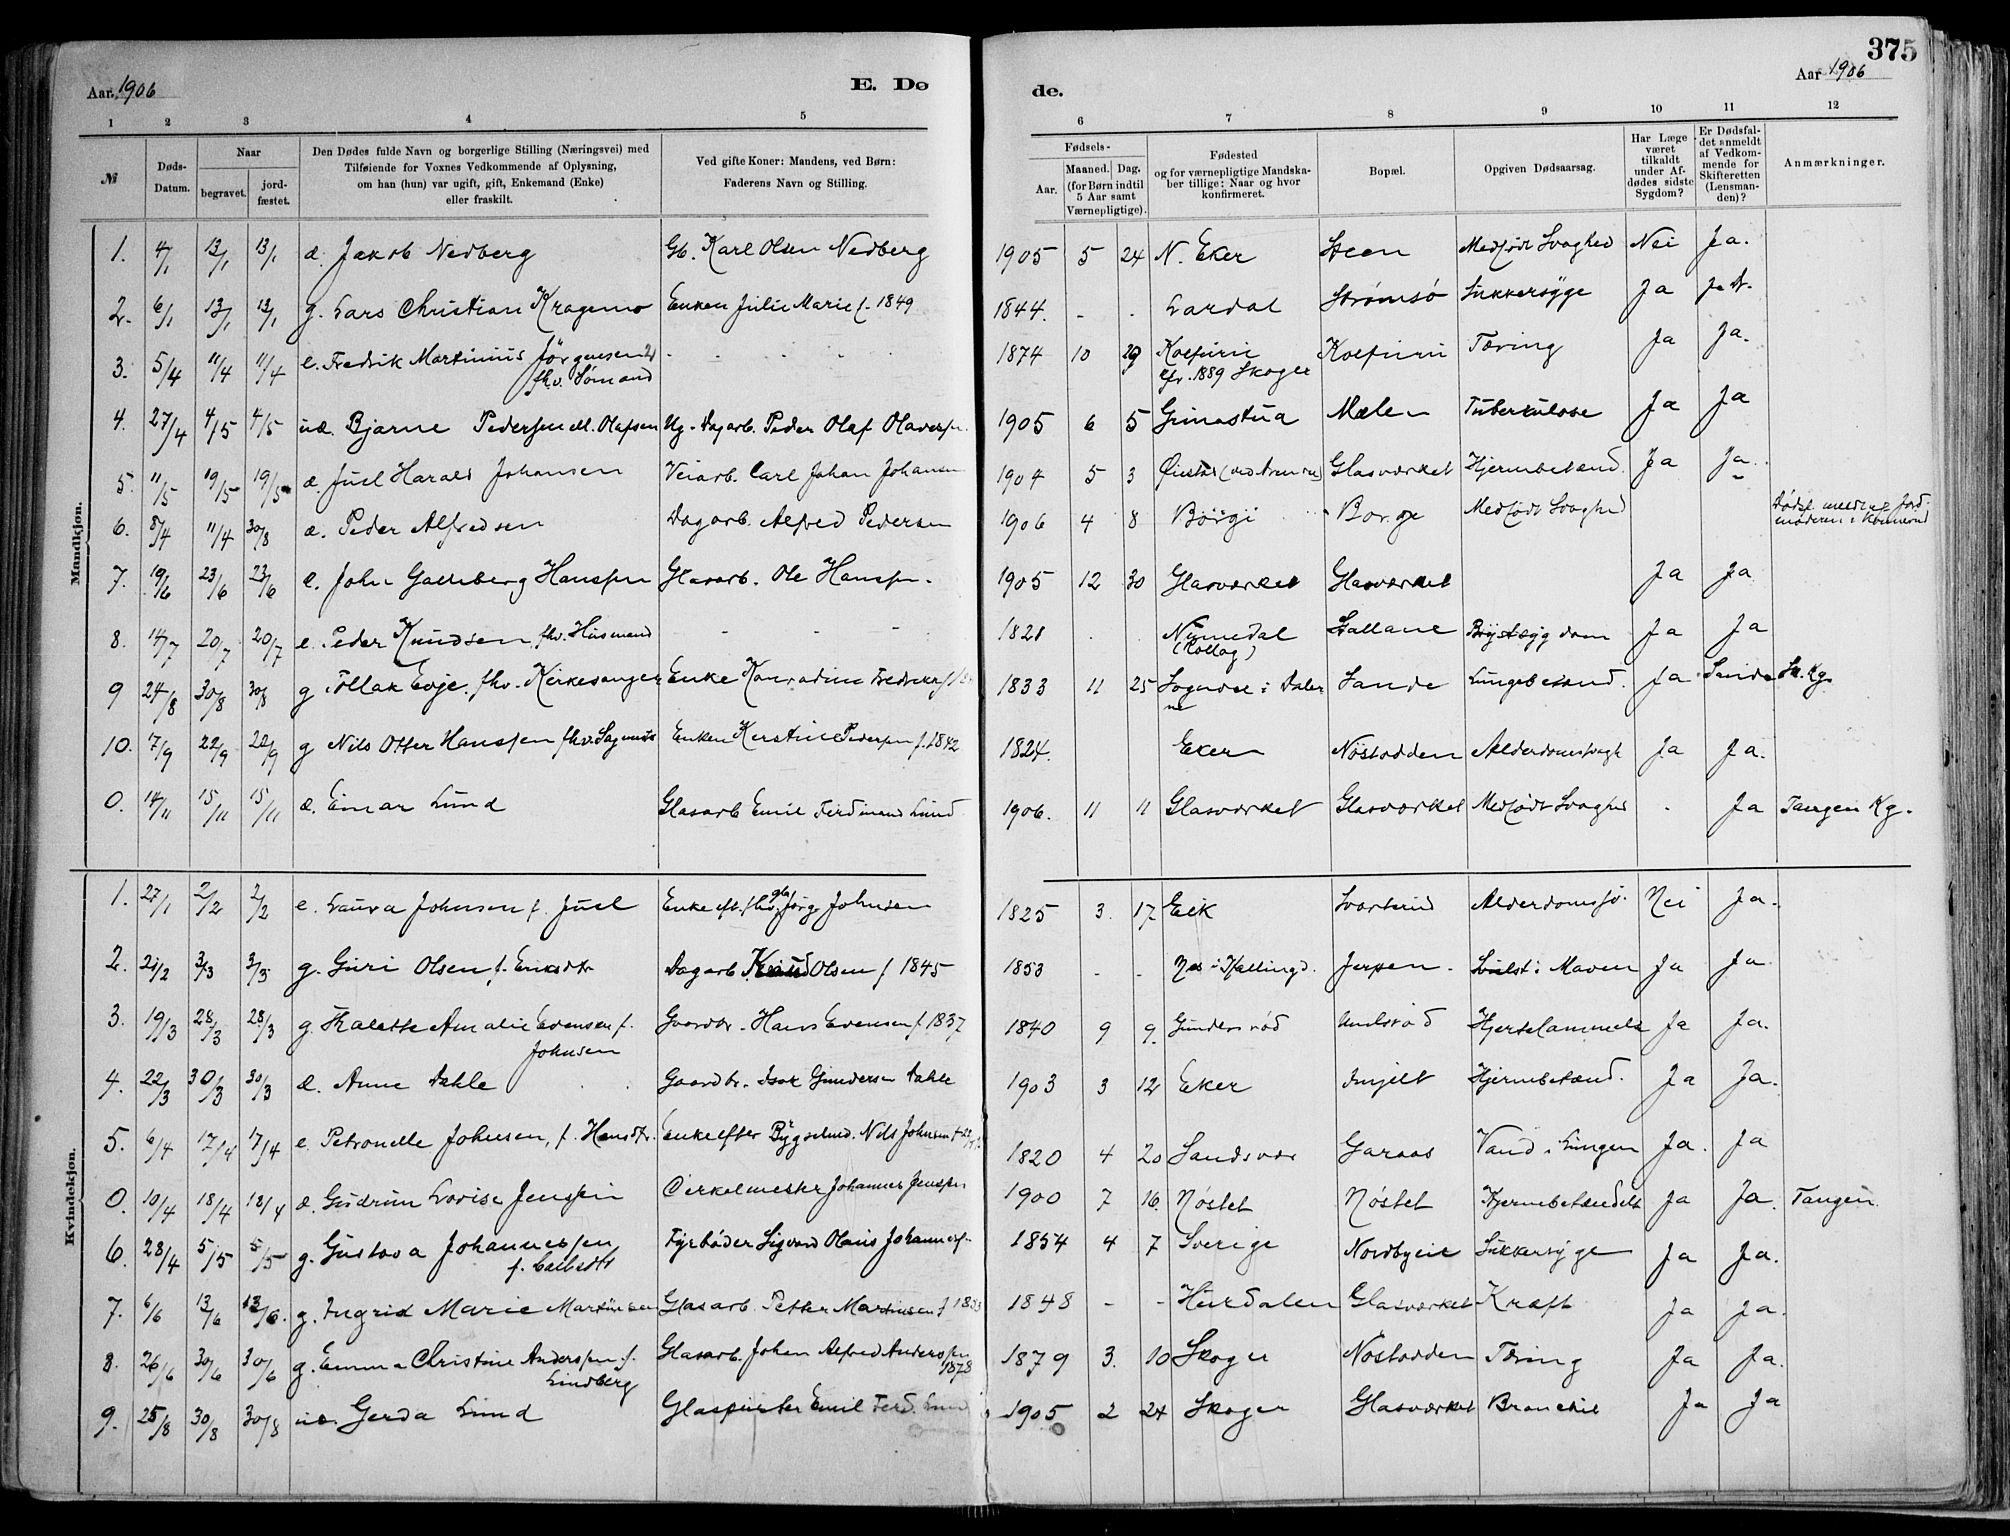 375
Aar. 1906 E. Dø de. Aar 1906
1 2 3 4 5 6 7 8 9 10 11 12
№ Døds-Datum. Naar begravet. jordfæstet. Den Dødes fulde Navn og borgerlige Stilling (Næringsvei) med Tilføiende for Voxnes Vedkommende af Oplysning, om han (hun) var ugift, gift, Enkemand (Enke) eller fraskilt. Ved gifte Koner: Mandens, ved Børn: Faderens Navn og Stilling. Fødsels- Aar. Maaned. Dag. (for Børn indtil 5 Aar samt Værnepligtige). Fødested og for værnepligtige Mandskaber tillige: Naar og hvor konfirmeret. Bopæl. Opgiven Dødsaarsag. Har Læge været tilkaldt under Afdødes sidste Sygdom? Er Dødsfaldet anmeldt af Vedkommende for Skifteretten (Lensmanden)? Anmærkninger.
Mandkjøn.
1. 4/1 13/1 13/1 æ. Jakob Nedberg Gb. Karl Olsen Nedberg 1905 5 24 N. Eker Steen Medfødt Svaghed Nei Ja.
2. 6/1 13/1 13/1 g. Lars Christian Kragemo Enken Julie Marie f. 1849 1844. - - Lardal Strømsø Sukkersyge Ja
3. 5/4 11/4 11/4 e. Fredrik Martinius Jörgensen 1874 10 29 Tæring Ja Ja.
fhv. Sömand cfr. 1889 Skoger
4. 27/4 4/5 4/5 uæ. Bjarne Pedersen Olafsen Ug. Dagarb. Peder Olaf 1905 6 5 Mælen Tuberkulose Ja Ja
5. 11/5 19/5 19/5 æ. Juel Harald Johansen Veiarb. Carl Johan Johansen 1904 5 3 Glasværket Hjernebetænd. Ja Ja.
6. 8/4 11/4 30/8 æ. Peder Alfredsen Dagarb. Alfred Pedersen 1906 4 8 Medfødt Svaghed
7. 19/6 23/6 23/6 John Hanssen Glasarb. Ole Hanssen. 1905 12 30 Glasværket Glasværket Ja Ja
8. 14/7 20/7 20/7 e. Peder Knudsen, fhv. Husmand - - - 1821 Numedal Brystsygdom Ja Ja
(Rollag)
9 24/8 30/8 30/8 g Tollak Evje. fhv. Kirkesanger Enke 1833 11 25 Sogndal i Dalerne Sande Lungebetænd. Ja Sande
10. 7/9 22/9 22/9 g Nils Otter Hanssen fhv. Enken Kerstine Pedersen f. 1842 1824. Eker Nøstodden Alderdomssvagh Ja Ja.
0. 14/11 15/11 15/11 æ. Einar Lund Glasarb Emil Ferdinand Lund 1906. 11 11 Glasværket Glasværket Medfødt Svaghed - Ja Tangen Kg.
Kvindekjøn.
1. 27/1 2/2 2/2 e. Laura Johnsen f. Juel Enke eft. fhv. Jörg Johnsen 1825 3. 17 Eik Alderdomssv. Nei Ja.
2. 21/2 3/3 3/3 g. Guri Olsen f. Eriksdtr Dagarb. Knud Olsen f 1845 1853 - - Nes i Hallingd. Jerpen. Svulst i Maven Ja Ja
3. 19/3 28/3 28/3 g. Thalette Amalie Evensen f. Gaardbr. Hans Evensen f. 1837 1840 9 9. Hjertelammelse Ja Ja.
Johnsen
4. 22/3 30/3 30/3 æ. Anne Dahle Gaardbr. Isak Gundersen Dahle 1903 3 12 Eker Hjernebetænd. Ja Ja.
5. 6/4 17/4 17/4 e. Petronelle Johnsen, f. Hansdtr. Enke efter Bygselmd. Nils Johnsen 1820 4 20 Sandsvær Garaas Vand i Lungen Ja. Ja
0. 10/4 18/4 18/4 æ. Gudrun Lovise Jenssen Cirkelmester Johannes Jenssen 1900 7 16 Nøstet Nøstet Hjernebetændelse Ja Ja. Tangen.
6. 28/4 5/5 5/5 g. Gustava Johannessen Fyrbøder Sigvard Olaus Johanness. 1854 4 7 Sverige Nordbyeie Sukkersyge Ja Ja.
7. 6/6 13/6 13/6. g. Ingrid Marie Martinsen Glasarb. Petter Martinsen f 1848 - - Hurdalen Glasværket Kræft Ja Ja.
8. 26/6 30/6 30/6 g. Emma Christine Anderssen f. Glasarb. Johan Alfred Anderssen 1879 3. 10 Skoger Nøstodden Tæring Ja Ja.
Lindberg 1878
9. 25/8 30/8 30/8 uæ. Gerda Lund Glaspuster Emil Ferd. Lund 1905 2 24 Skoger Glasværket Bronchit Ja Ja